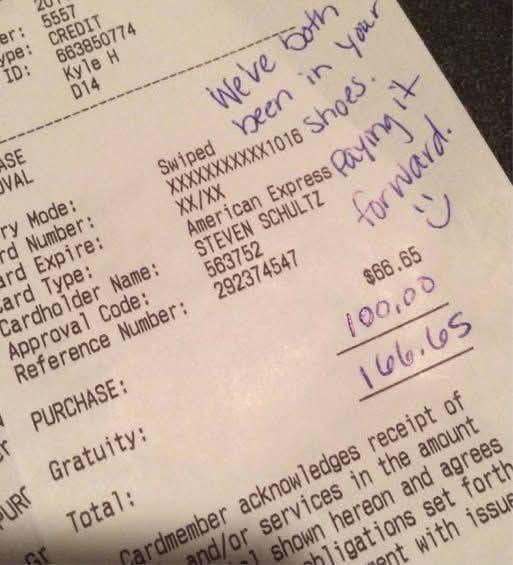 5557
CREDIT
ID: 663850774
Kyle H
D14
We've both
been in your
shoes.
Paying it
forward.
Swiped
XXXXXXXXXXX1016
XX/XX
American Express
STEVEN SCHULTZ
563752
292374547
ry Mode:
rd Number:
ard Expire:
ard Type:
Cardholder Name:
Approval Code:
Reference Number:
PURCHASE: $66.65
Gratuity: 100.00
Total: 166.65
Cardmember acknowledges receipt of
and/or services in the amount
shown hereon and agrees
obligations set forth
ent with issue